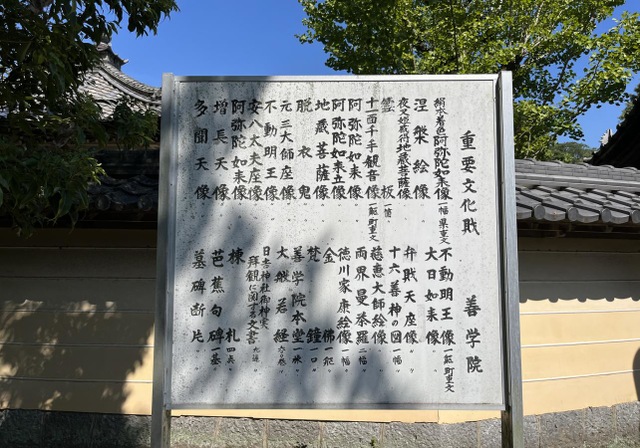 重要文化財　善学院
絹本着色阿弥陀如来像 一幅 県重文
夜叉姫成得地蔵菩薩像
涅槃絵像
霊板 一箇
十一面千手観音像 一躯 町重文
阿弥陀如来像
阿弥陀如来立像
地蔵菩薩像
脱衣鬼
元三大師座像
不動明王像
安八太夫座像
阿弥陀如来像
増長天像
多聞天像
不動明王像 一躯 町重文
大日如来像
弁財天座像
十六善神の図 一幅
慈恵大師絵像
両界曼荼羅 二幅
徳川家康絵像 一幅
金佛 一躯
梵鐘 一口
善学院本堂 一棟
大般若経
日吉神社御神実
拝観に関する文書
棟札 四点
芭蕉句碑 一基
墓碑断片